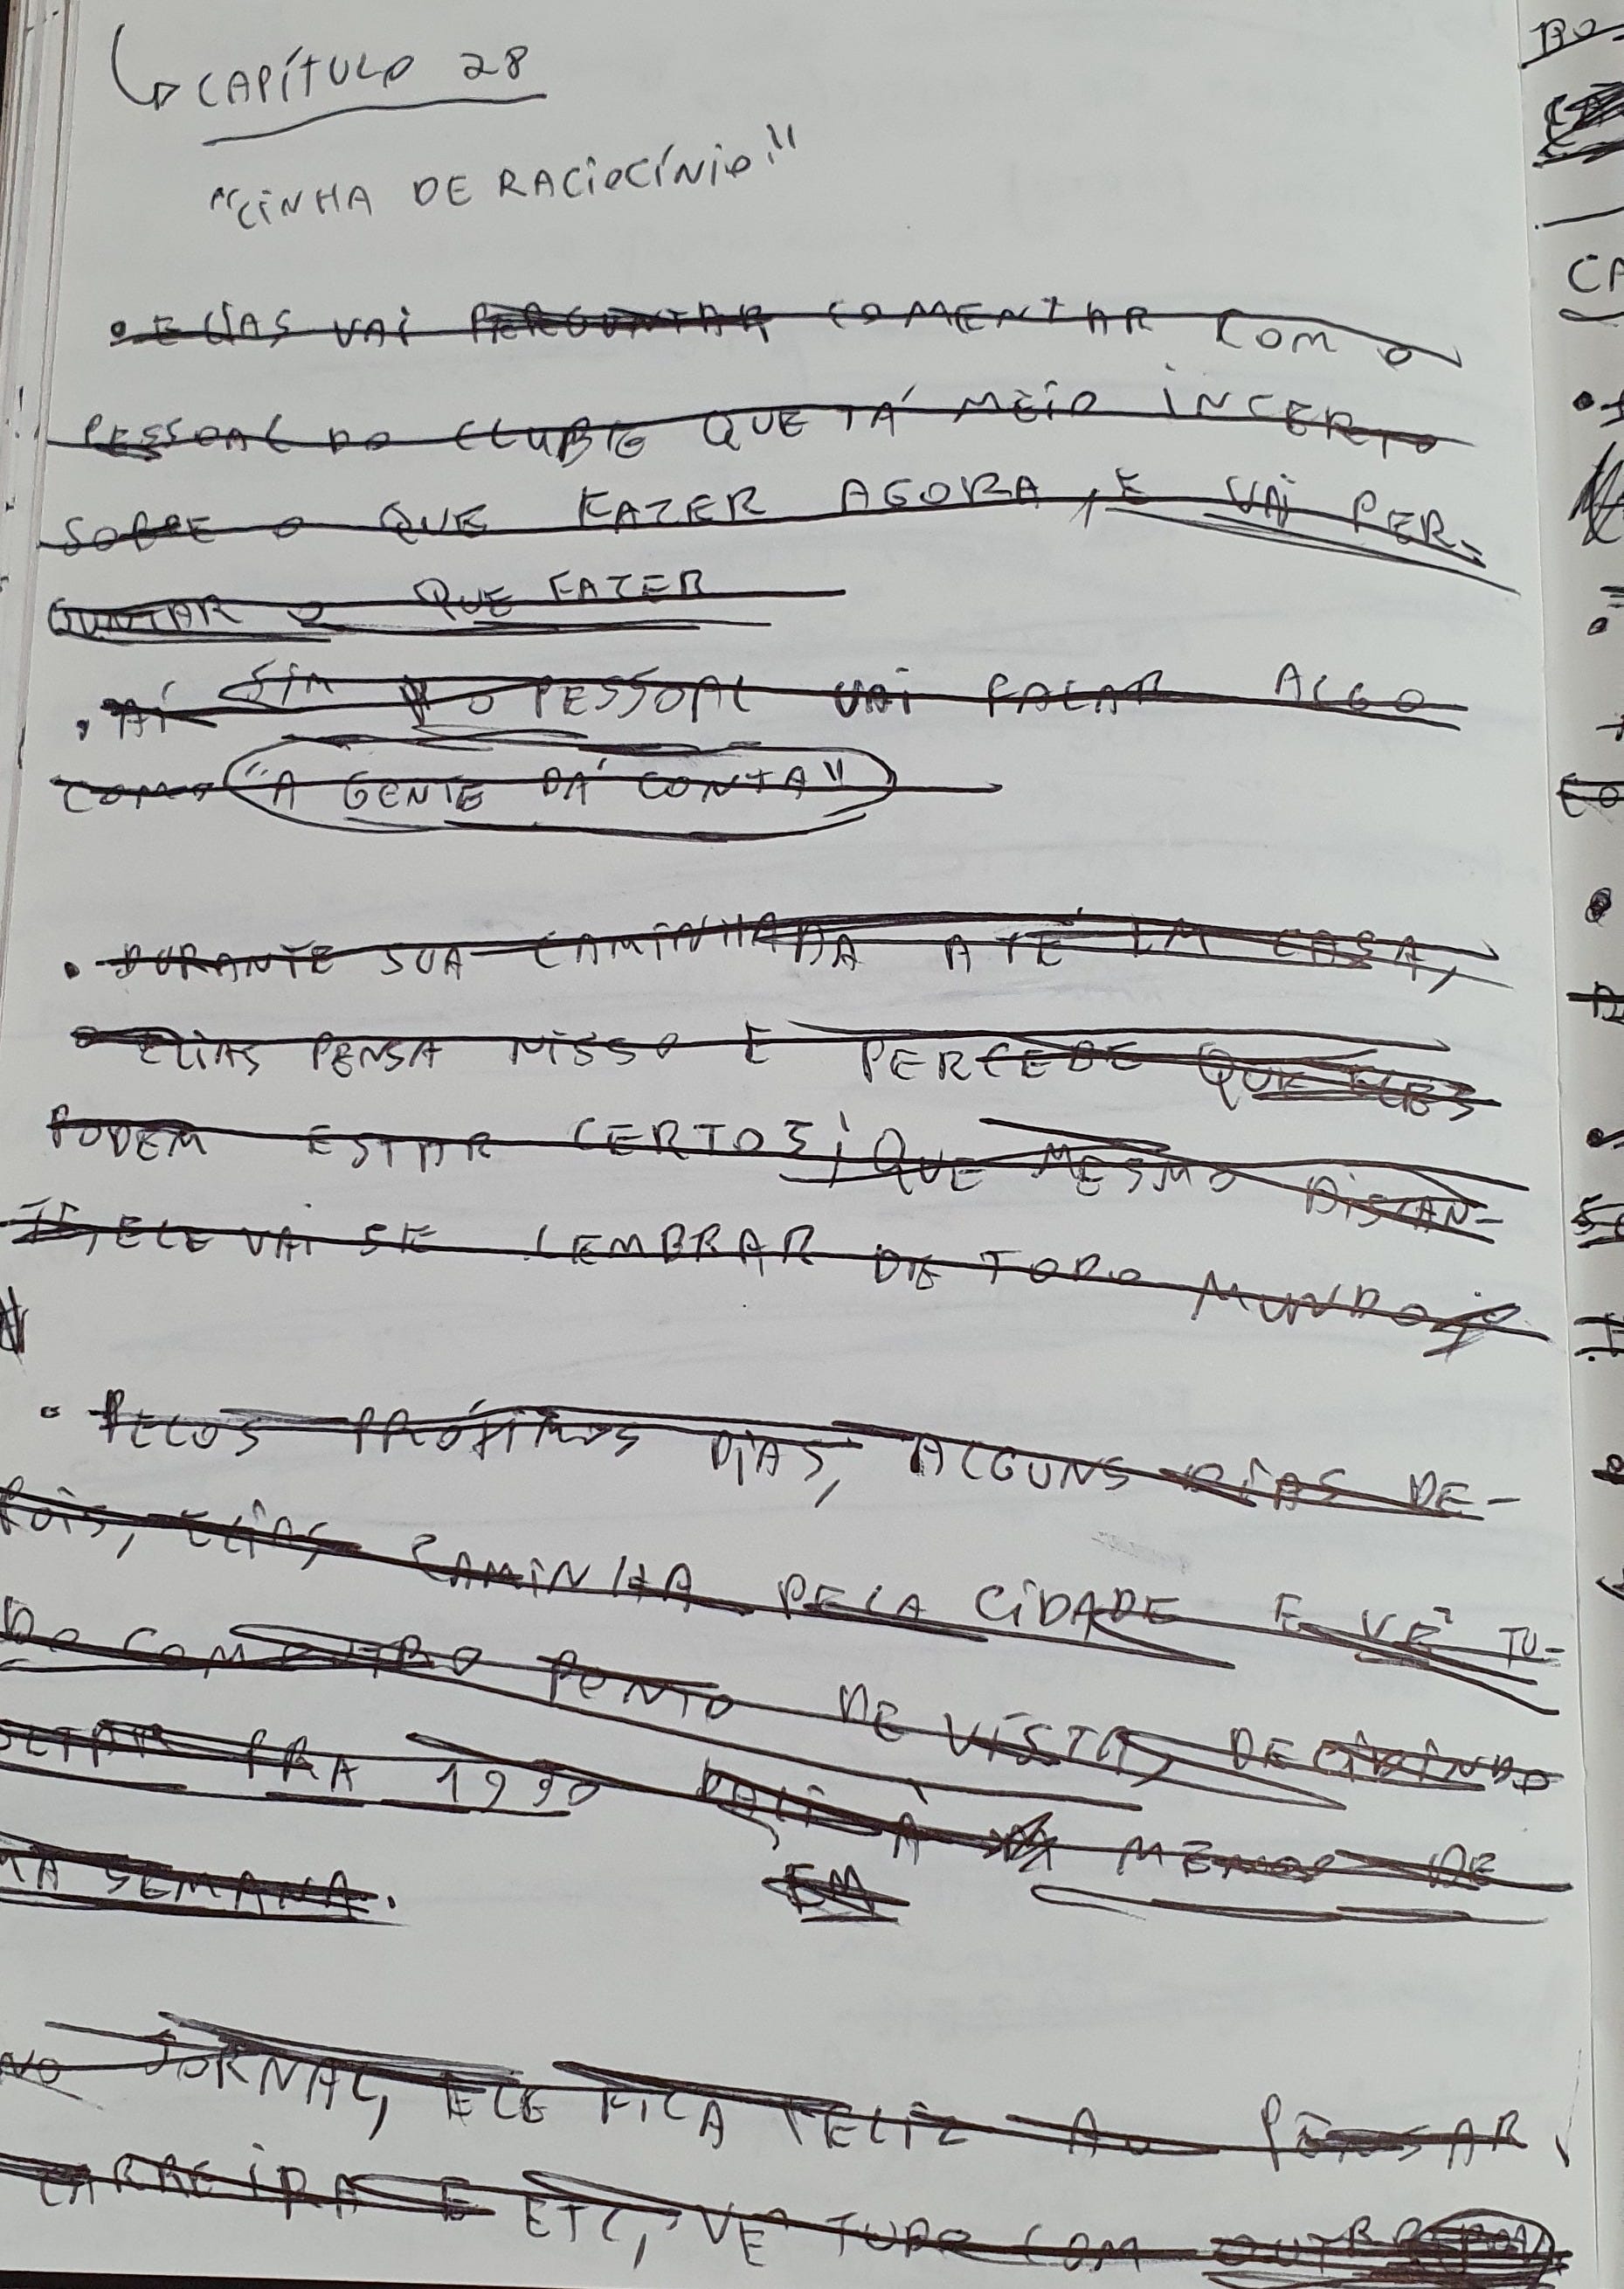 CAPÍTULO 28
"LINHA DE RACIOCÍNIO."
• ELIAS VAI PERGUNTAR COMENTAR COM O
PESSOAL DO CLUBE QUE TÁ MEIO INCERTO
SOBRE O QUE FAZER AGORA, E VAI PER-
GUNTAR O QUE FAZER
• AÍ SIM O PESSOAL VAI FALAR ALGO
COMO "A GENTE DÁ CONTA"
• DURANTE SUA CAMINHADA ATÉ EM CASA,
ELIAS PENSA NISSO E PERCEBE QUE ELES
PODEM ESTAR CERTOS; QUE MESMO DISTAN-
TE, ELE VAI SE LEMBRAR DE TODO MUNDO
• PELOS PRÓXIMOS DIAS, ALGUNS DIAS DE-
POIS, ELIAS CAMINHA PELA CIDADE E VÊ TU-
DO COM OUTRO PONTO DE VISTA, DECIDINDO
PRA 1990 DALI À MENOS DE
EM
SEMANA.
NO JORNAL, ELE FICA FELIZ AO PENSAR
CARREIRA E ETC, VÊ TUDO COM
BO
CA